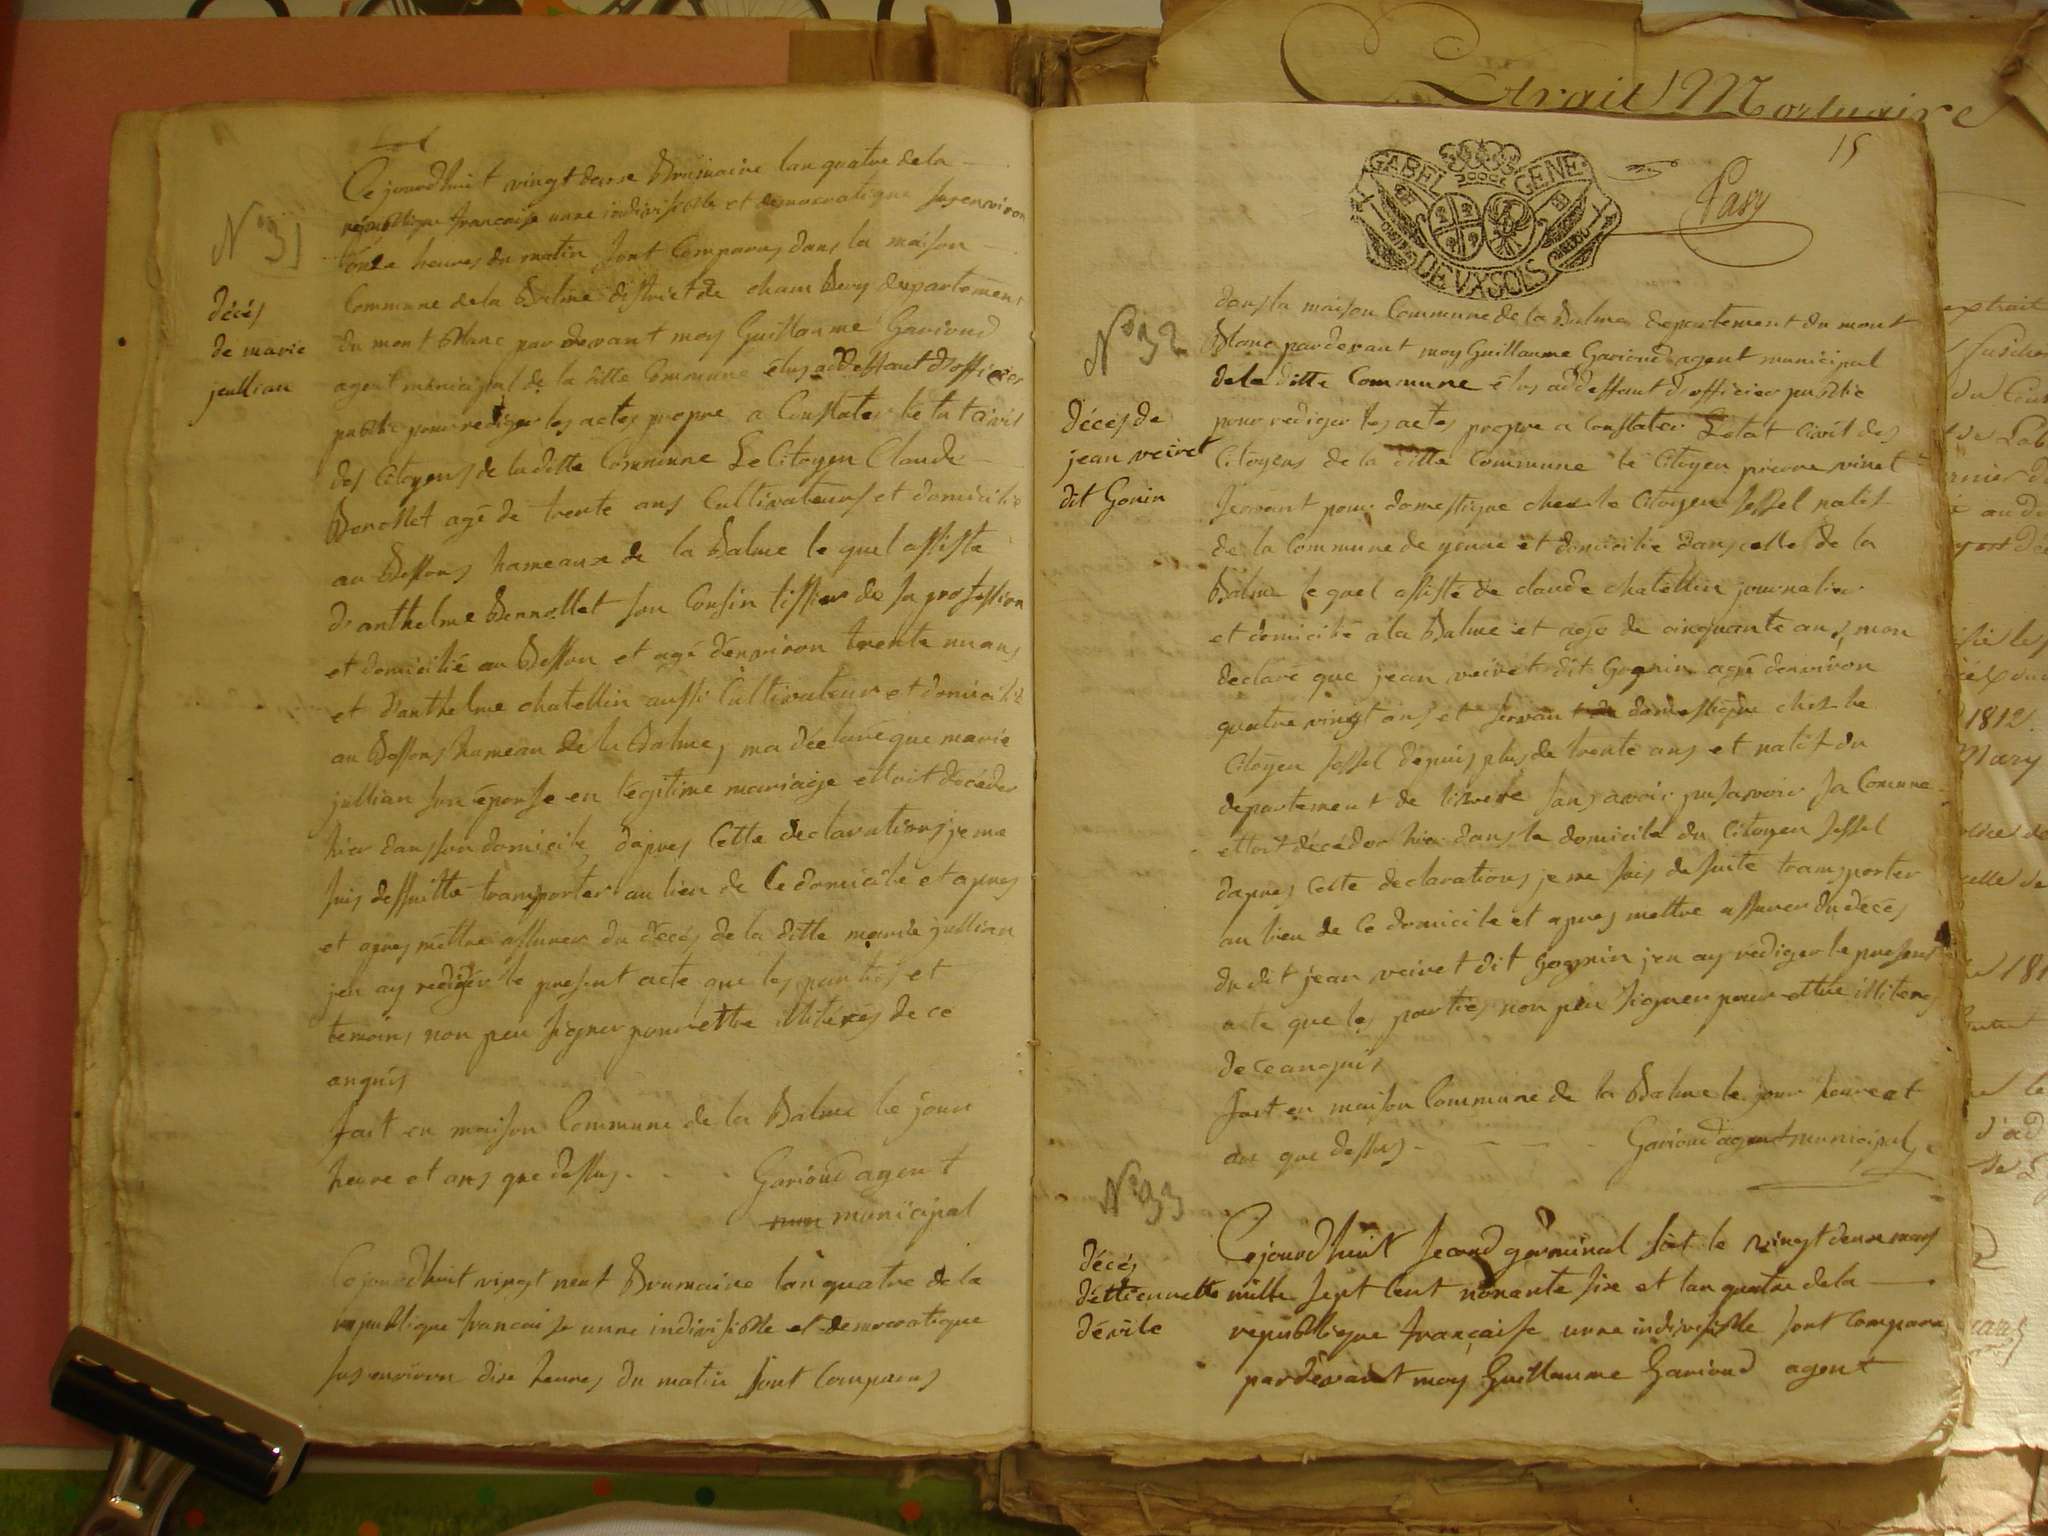 Ce jourdhuit vingt deuxe Brumaire lan quatre de la
republique francaise unne indivisible et democratique sus environ
onze heures du matin sont Comparus dans la maison
Commune de la Balme district de chambery departement
du mont Blanc par devant moy Guillaume Garioud
agent municipal de la ditte Commune élus addeffaut d'officier
public pour rediger les actes propre a Constater l'etat Civil
des Citoyens de la ditte Commune Le Citoyen Claude
agé de trente ans Cultivateurs et domicilié
au Bessons hameaux de la Balme le quel assisté
d'anthelme son Cousin tissier de sa proffession
et domicilié au Besson et agé d'environ trente un ans
et d'anthelme chatellin aussi Cultivateur et domicilié
au Bessons hameau de la Balme, ma déclaré que marie
jullian son épouse en légitime mariage ettoit décéder
hier dans son domicile, dapres Cette declarations je me
suis dessuitte transporter au lieu de Ce domicile et apres
et apres mettre assurer du décés de la ditte marie jullian
jen ay rediger le present acte que les parties et
temoins non peu signer pour ettre illiterés de ce
anquis
fait en maison Commune de la Balme le jour
heure et ans que dessus - - - Garioud agent
municipal
Ce jourdhuit vingt neuf Brumaire lan quatre de la
republique francaise unne indivisible et democratique
sus environ dixe heures du matin sont Comparus
N° 31
décés
de marie
jullian
15
GABEL GENE
DEUX SOLS
dans la maison Commune de la Balme departement du mont
Blanc par devant moy Guillaume Garioud agent municipal
de la ditte Commune élus addeffaut d'officier public
pour rediger les actes propre a Constater L'etat Civil des
Citoyens de la ditte Commune le Citoyen pierre vinet
servant pour domestique chex le Citoyen sessel natif
de la Commune de yenne et domicilié dans celle de la
Balme le quel assisté de claude chatellin journalier
et domicilié a la Balme et agé de cinquante ans, mon
declaré que jean veiret dit Gognin agé d'environ
quatre vingt ans et servant domestique chez le
Citoyen sessel depuis plus de trente ans et natif du
departement de liserre sans avoir pu savoir sa Comune
ettoit décéder hier dans le domicile du Citoyen sessel
dapres Cette declarations je me suis de suite transporter
au lieu de Ce domicile et apres mettre assurer du décés
du dit jean veiret dit Gognin jen ay rediger le present
acte que les parties non peu signer pour ettre illiteres
de ce anquis
fait en maison Commune de la Balme le jour heure et
an que dessus - - - - Garioud agent municipal
Ce jourdhuit second germinal soit le vingt deux mars
mille sept Cent nonante sixe et lan quatre de la
republique française unne indivisible sont Comparu
par dévant moy Guillaume Garioud agent
N° 32
décés de
jean veiret
dit Gonin
N° 33
décés
d'éttiennette
dévile
Extrait Mortuaire
extrait
1812.
Mary